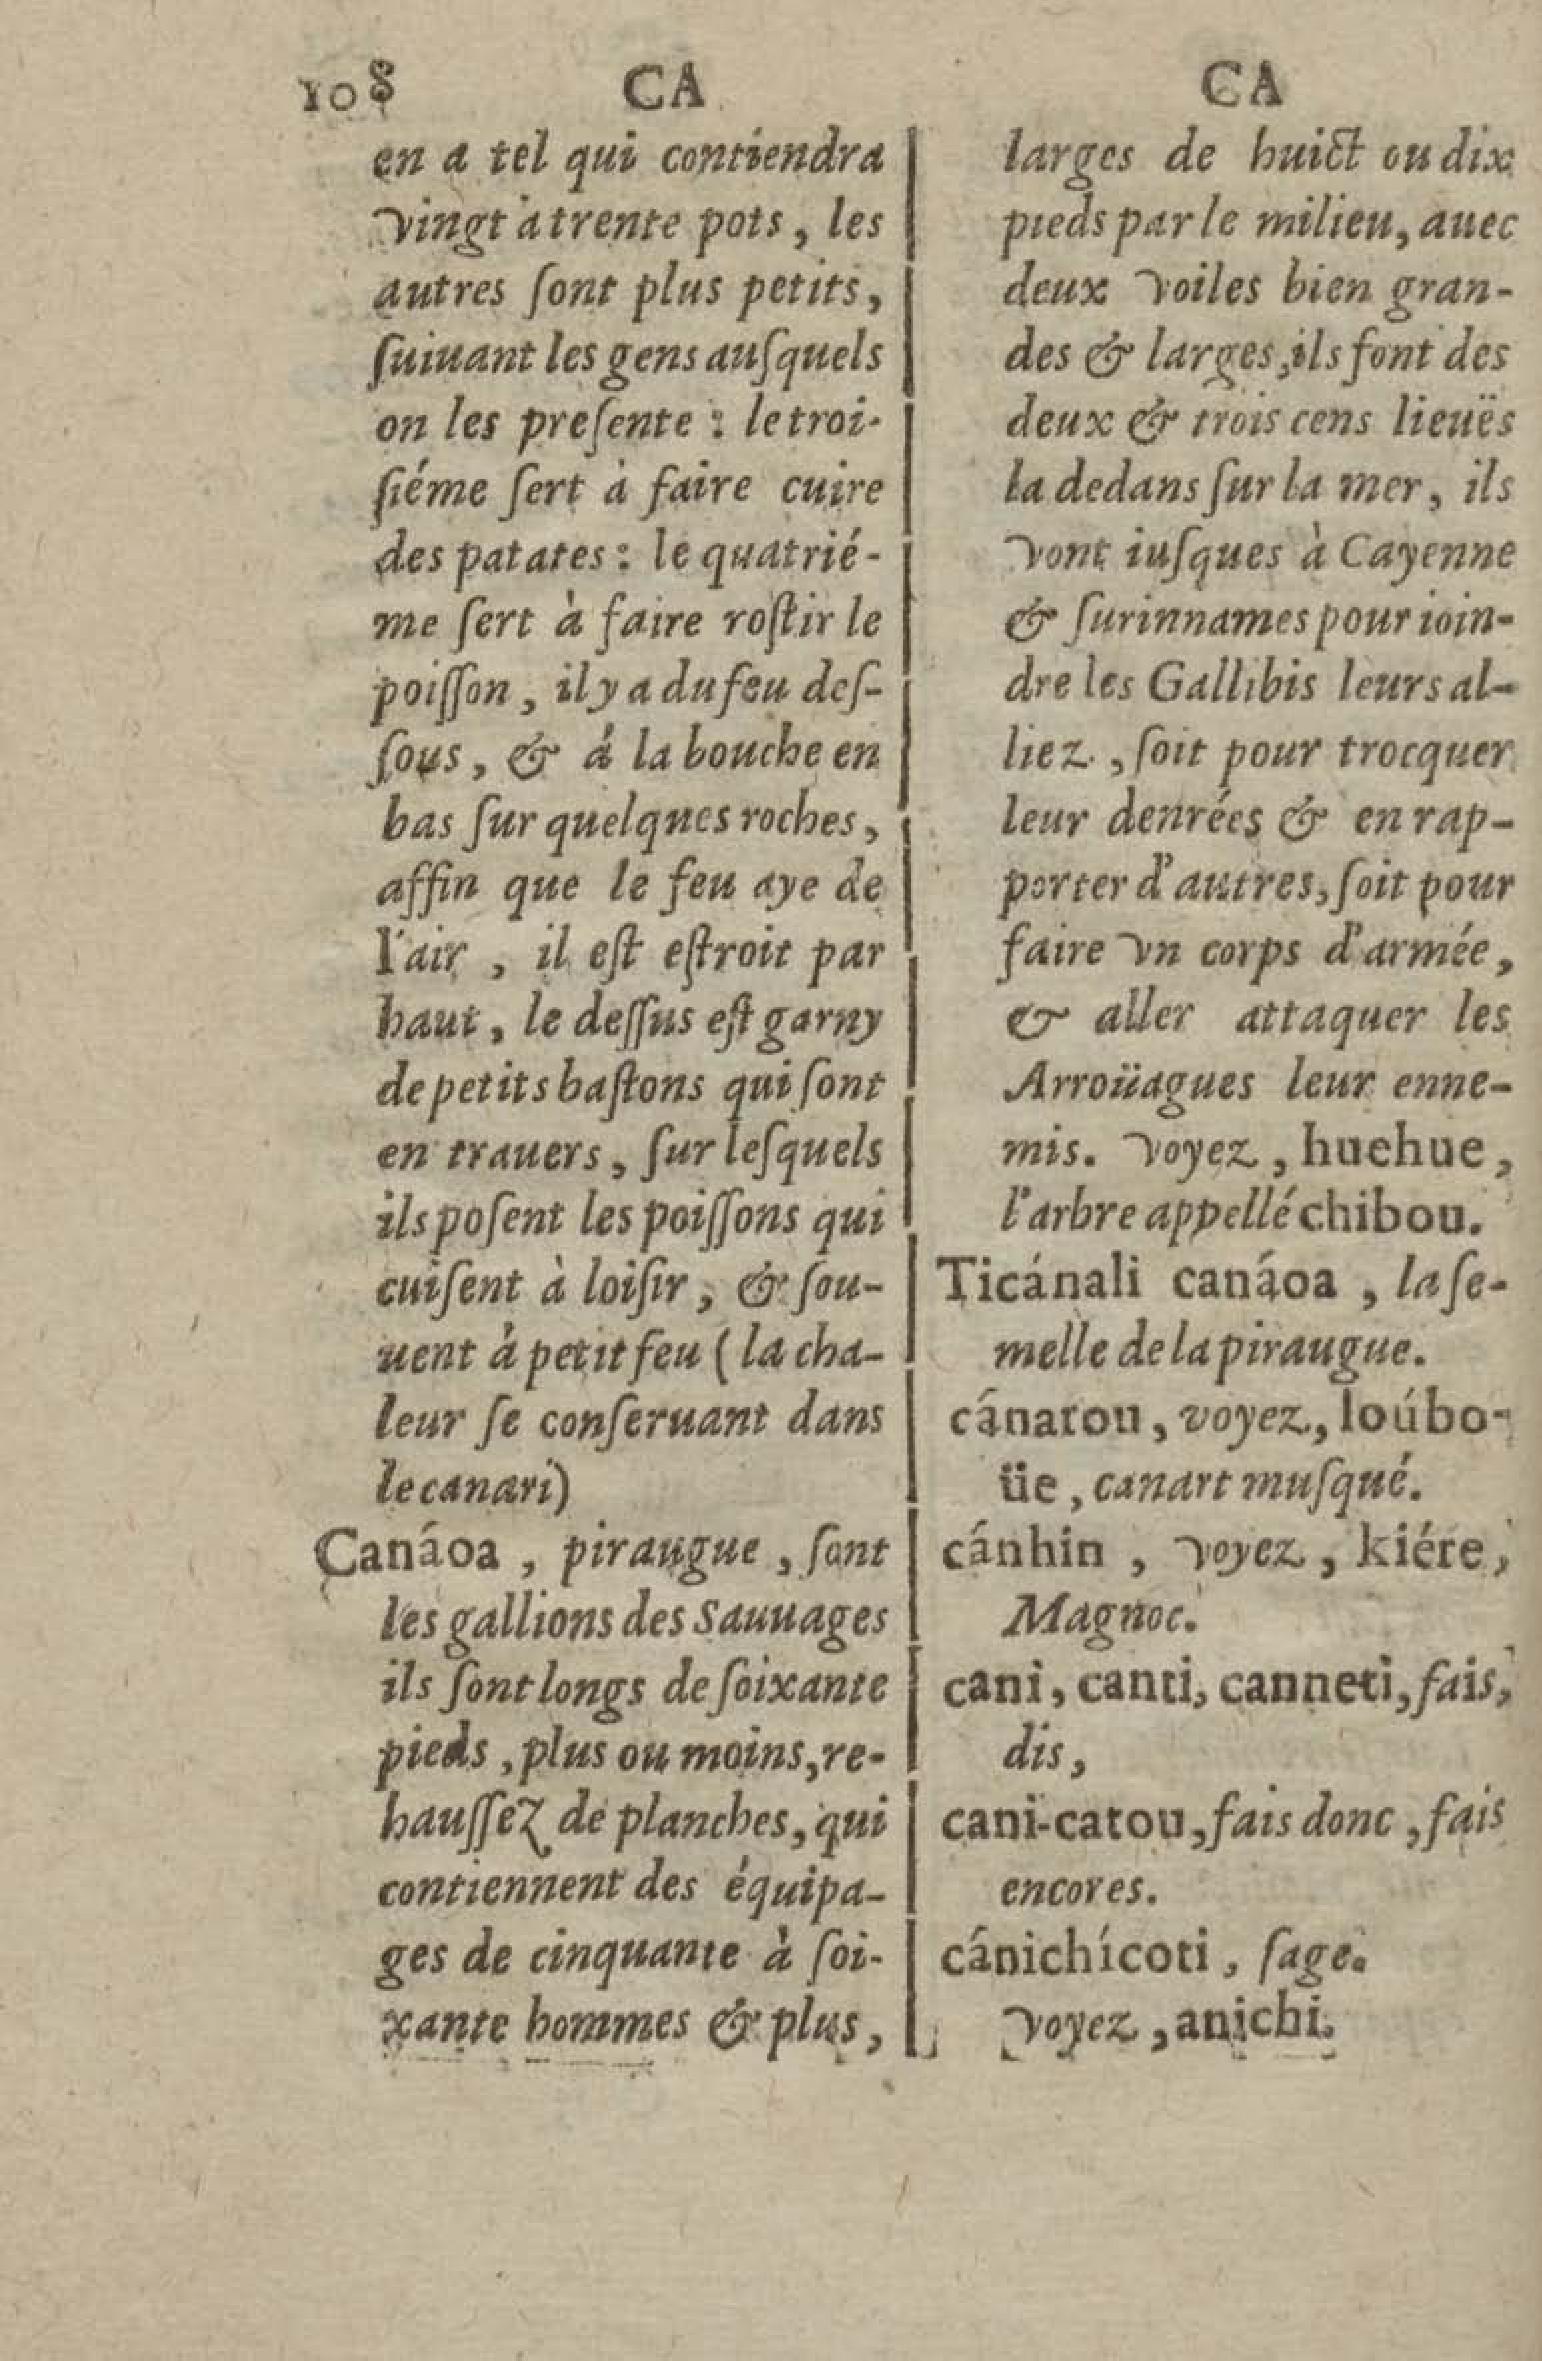 108 CA CA
en a tel qui contiendra
vingt à trente pots, les
autres ſont plus petits,
ſuiuant les gens auſquels
on les preſente : le troi-
ſiéme ſert à faire cuire
des patates : le quatrié-
me ſert à faire roſtir le
poiſſon, il y a du feu deſ-
ſous, & à la bouche en
bas ſur quelques roches,
affin que le feu aye de
l'air, il eſt eſtroit par
haut, le deſſus eſt garny
de petits baſtons qui ſont
en trauers, ſur leſquels
ils poſent les poiſſons qui
cuiſent à loiſir, & ſou-
uent à petit feu (la cha-
leur ſe conſeruant dans
le canari)
Canáoa, piraugue, ſont
les gallions des Sauuages
ils ſont longs de ſoixante
pieds, plus ou moins, re-
hauſſez de planches, qui
contiennent des équipa-
ges de cinquante à ſoi-
xante hommes & plus,
larges de huict ou dix
pieds par le milieu, auec
deux voiles bien gran-
des & larges, ils font des
deux & trois cens lieuës
la dedans ſur la mer, ils
vont iuſques à Cayenne
& ſurinnames pour ioin-
dre les Gallibis leurs al-
liez, ſoit pour trocquer
leur denrées & en rap-
porter d'autres, ſoit pour
faire vn corps d'armée,
& aller attaquer les
Arroüagues leur enne-
mis. voyez, huehue,
l'arbre appellé chibou.
Ticánali canáoa, la ſe-
melle de la piraugue.
cánatou, voyez, loúbo-
üe, canart muſqué.
cánhin, voyez, kiére,
Magnoc.
cani, canti, canneti, fais,
dis,
cani-catou, fais donc, fais
encores.
cánichícoti, ſage.
voyez, anichi.